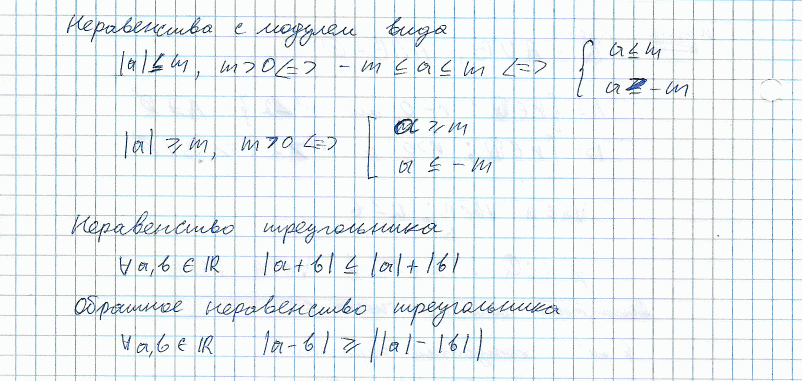 Неравенства с модулем вида
|a| ≤ m, m > 0 <=> - m ≤ a ≤ m <=> { a ≤ m
a ≥ - m
|a| ≥ m, m > 0 <=> [ a ≥ m
a ≤ - m
Неравенство треугольника
∀ a, b ∈ ℝ |a + b| ≤ |a| + |b|
Обратное неравенство треугольника
∀ a, b ∈ ℝ |a - b| ≥ ||a| - |b||